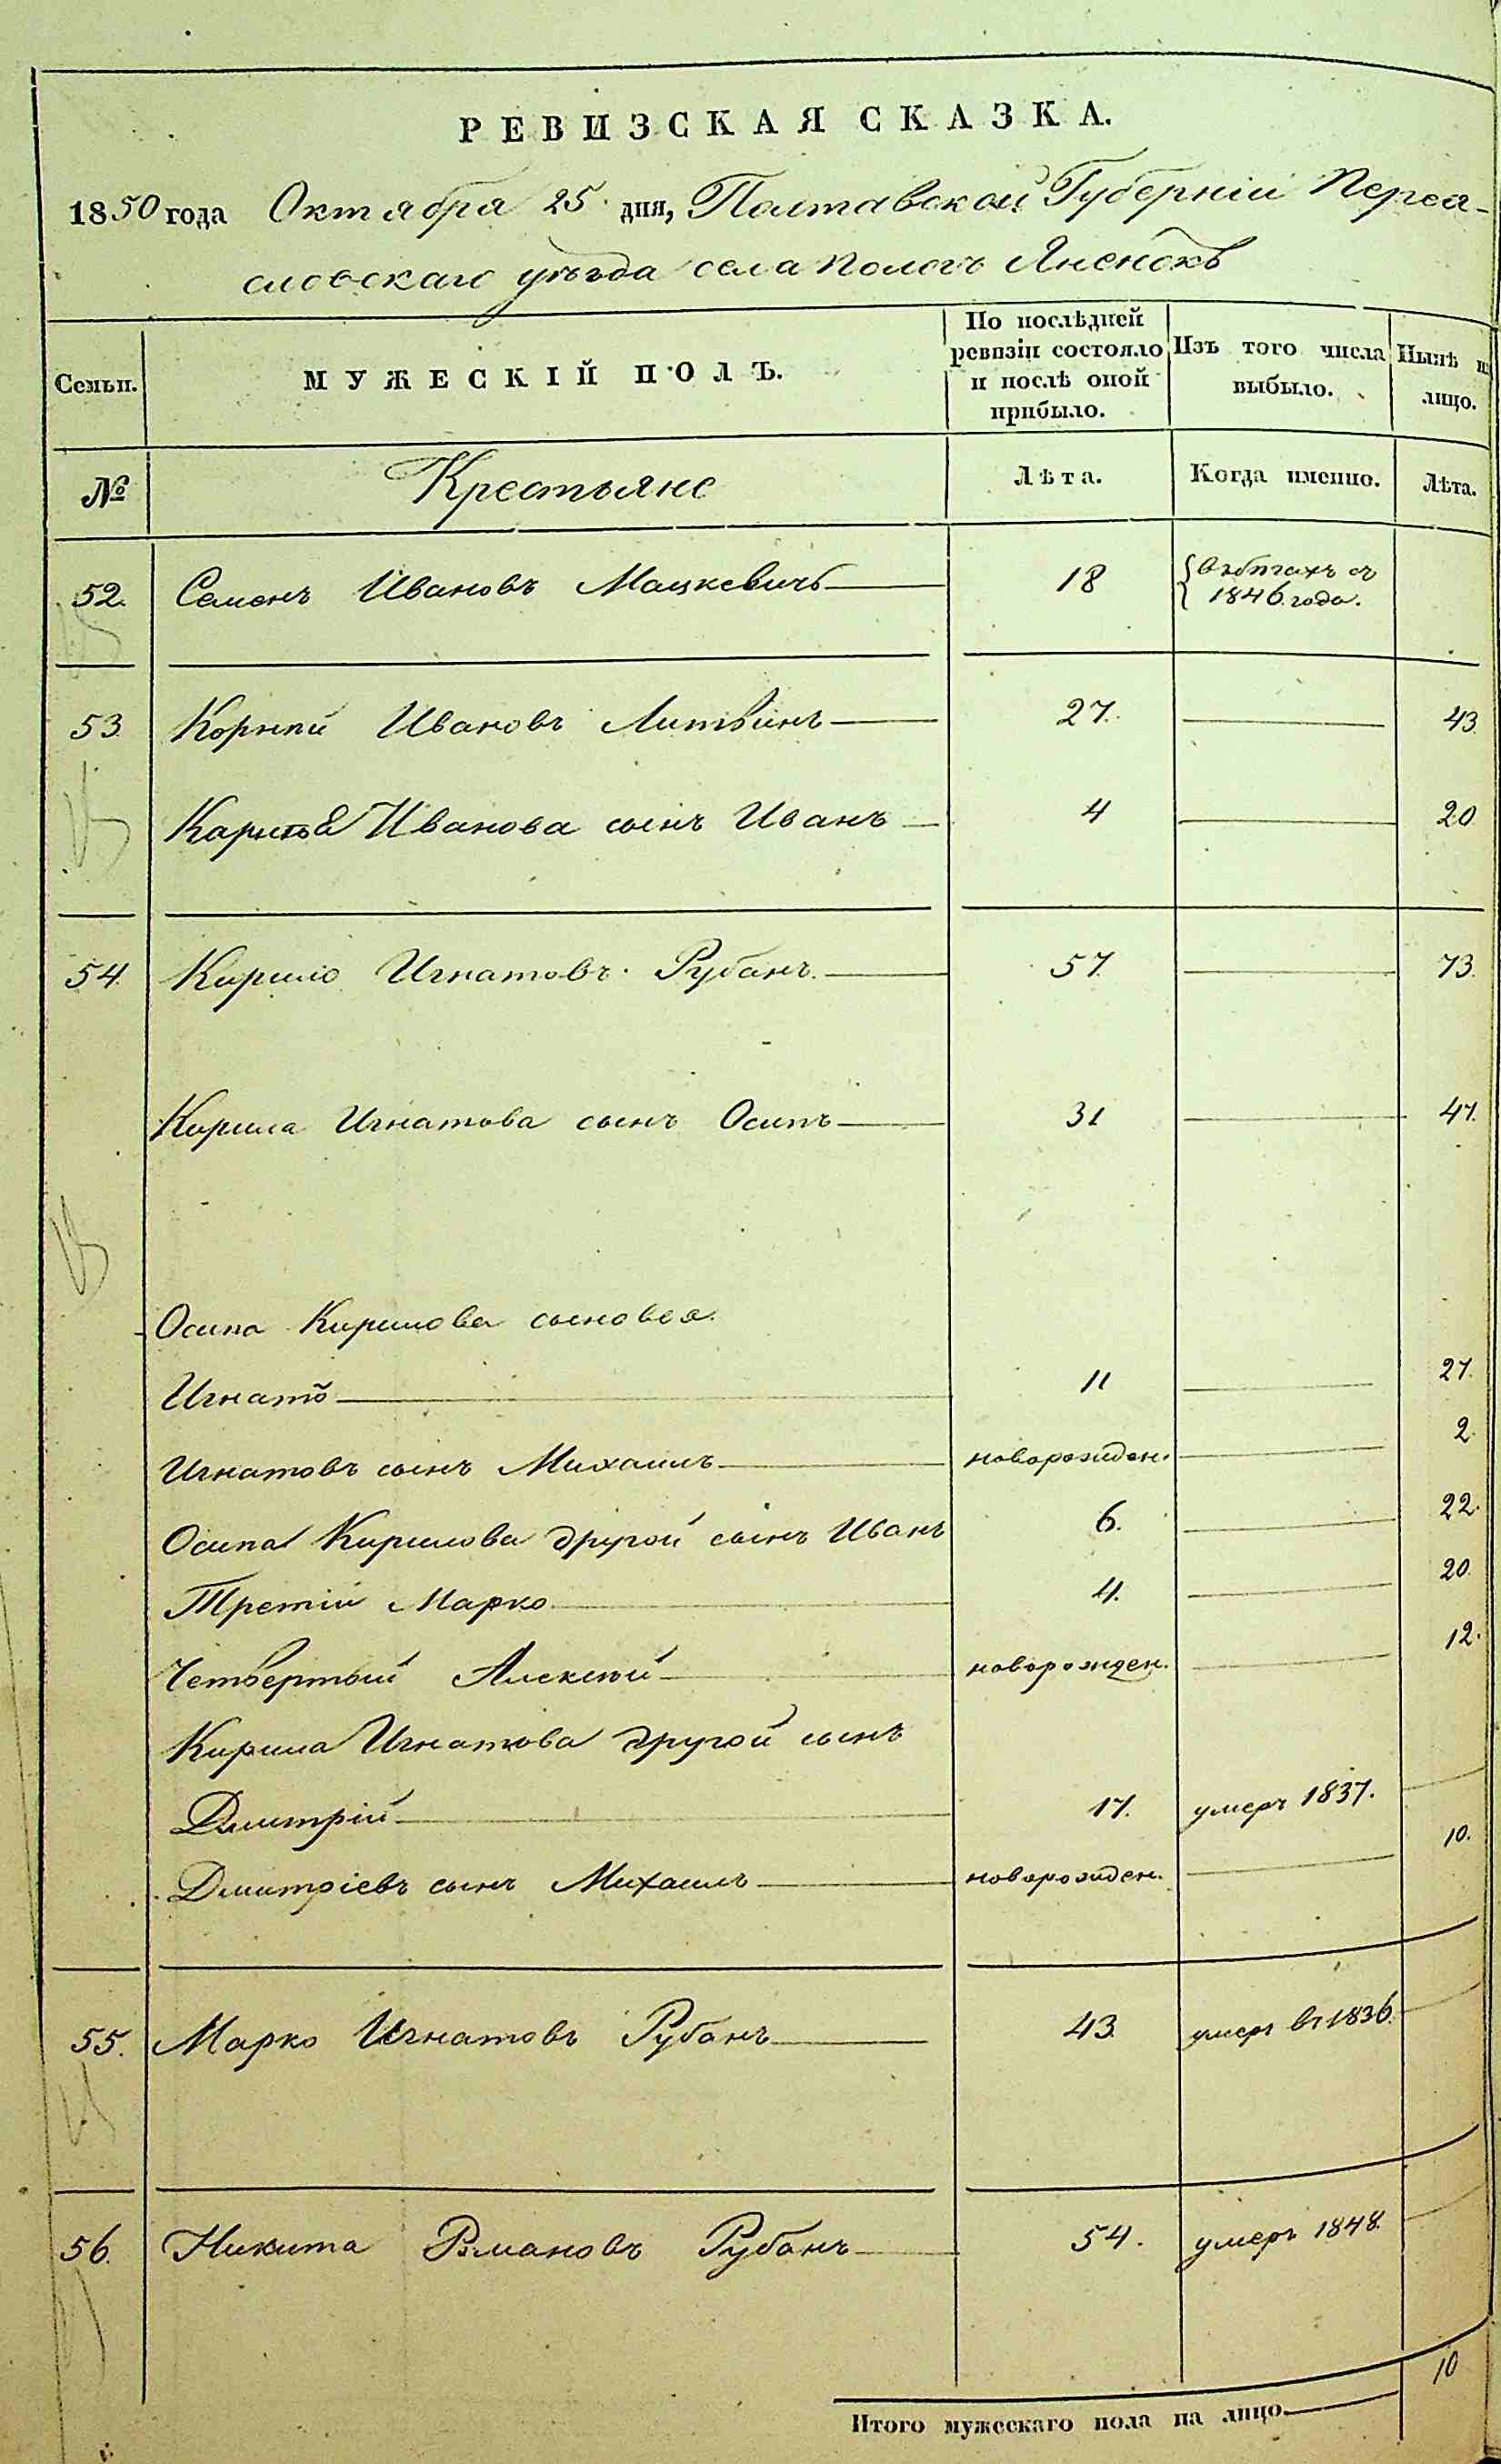 РЕВИЗСКАЯ СКАЗКА.
1850 года Октября 25 дня, Полтавской Губерніи Перея-
словскаго уѣзда села Пологъ Яненокъ
Семьи.
МУЖЕСКІЙ ПОЛЪ.
По послѣдней ревизіи состояло и послѣ оной прибыло.
Изъ того числа выбыло.
Нынѣ на лицо.
№ Крестьяне Лѣта. Когда именно. Лѣта.
52. Семенъ Ивановъ Мацкевичъ 18 въ бѣгахъ съ 1846 года.
53 Корнѣй Ивановъ Литвинъ 27. 43
Карнѣя Иванова сынъ Иванъ 4 20
54. Кирило Игнатовъ Рубанъ. 57 73.
Кирила Игнатова сынъ Осипъ 31 47.
Осипа Кирилова сыновья.
Игнатъ 11 27.
Игнатовъ сынъ Михаилъ новорожден. 2.
Осипа Кирилова другой сынъ Иванъ 6. 22.
Третій Марко 4. 20.
Четвертый Алексѣй новорожден. 12.
Кирила Игнатова другой сынъ
Дмитрій 17. умеръ 1837.
Дмитріевъ сынъ Михаилъ новорожден. 10.
55. Марко Игнатовъ Рубанъ 43. умеръ въ 1836.
56. Никита Романовъ Рубанъ 54. умеръ 1848.
Итого мужескаго пола на лицо 10